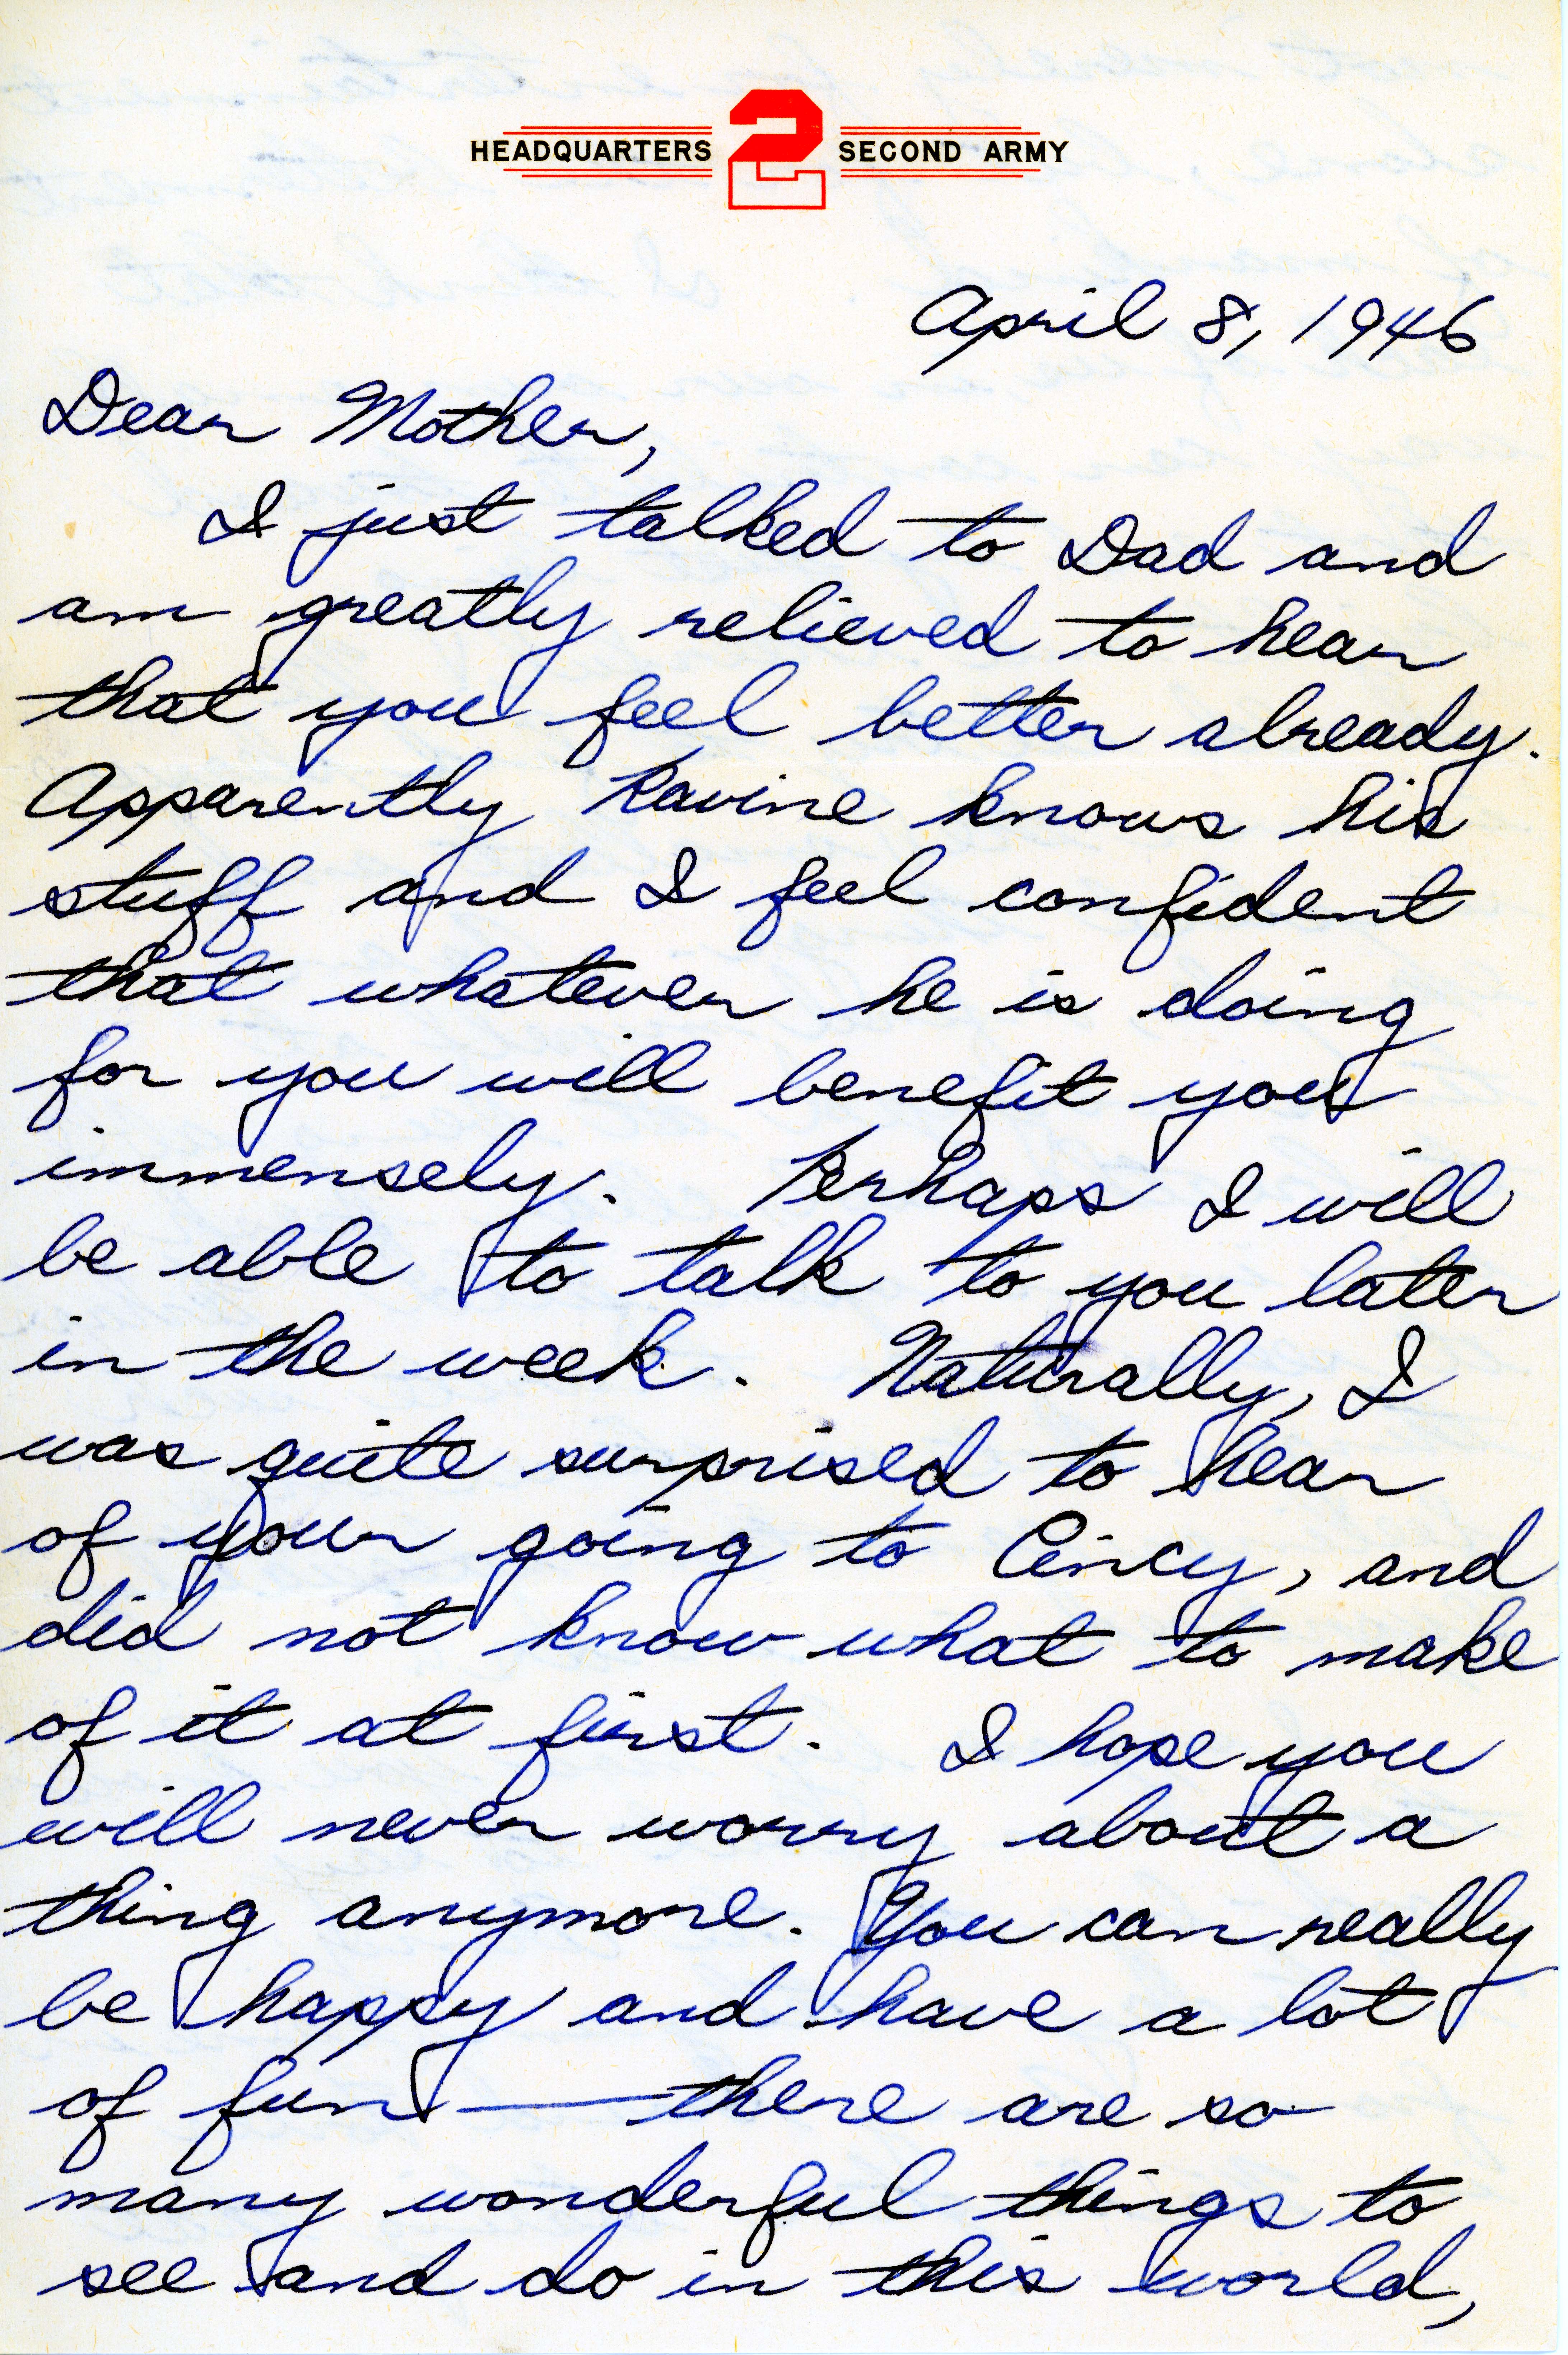 HEADQUARTERS 2 SECOND ARMY
April 8, 1946
Dear Mother,
I just talked to Dad and
am greatly relieved to hear
that you feel better already.
Apparently Ravine knows his
stuff and I feel confident
that whatever he is doing
for you will benefit you
immensely. Perhaps I will
be able to talk to you later
in the week. Naturally, I
was quite surprised to hear
of your going to Cincy, and
did not know what to make
of it at first. I hope you
will never worry about a
thing anymore. You can really
be happy and have a lot
of fun — there are so
many wonderful things to
see and do in this world,